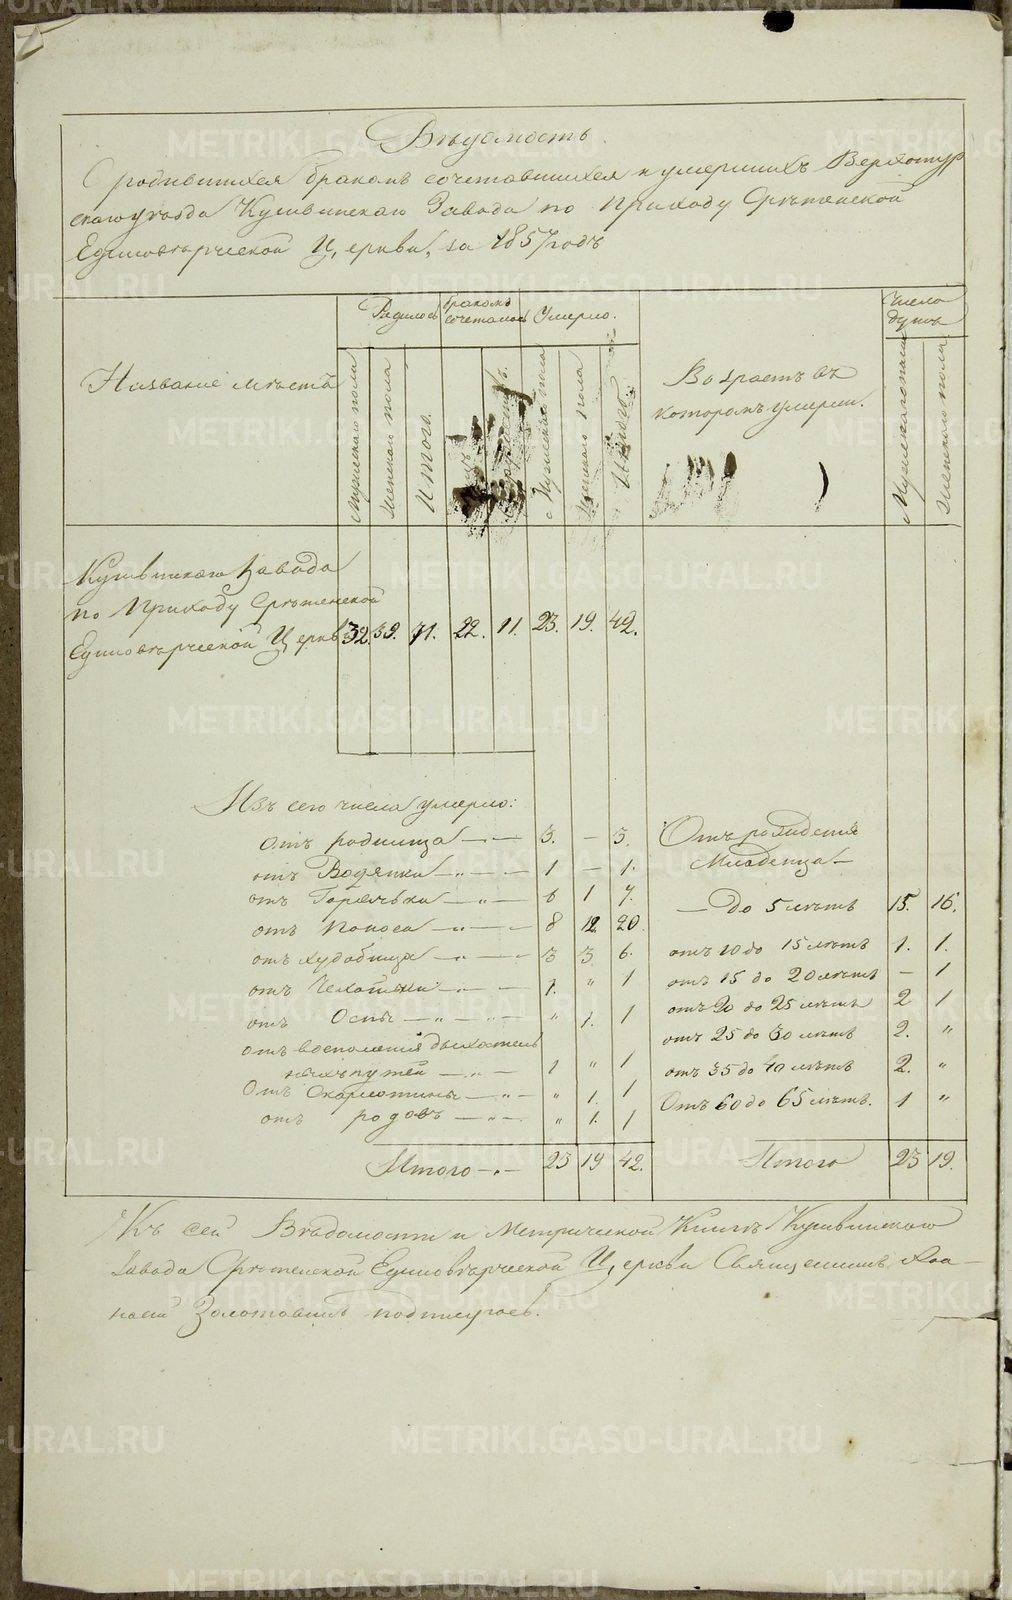 Вѣдомость.
О родившихся бракомъ сочетавшихся и умершихъ Верхотур
скаго уѣзда Кушвинскаго Завода по Приходу Срѣтенской
Единовѣрческой Церкви, за 1857 годъ
Название мѣста
Родилось
бракомъ сочеталось
Умерло.
Возрастъ въ
которомъ умерли.
Число
душъ
Мужескаго пола
Женскаго пола
Итого.
Мужескаго пола
Женскаго пола
Итого
Мужескаго пола
Женскаго пола
Кушвинскаго Завода
по Приходу Срѣтенской
Единовѣрческой Церкви 32. 39. 71. 22. 11. 23. 19. 42.
Изъ сего числа умерло:
отъ родимца 3. — 3.
отъ Водянки 1 — 1.
отъ Горячьки 6 1 7.
отъ Поноса 8 12 20.
отъ худобища 3 3 6.
отъ Чехотки 1. " 1
отъ Оспы " 1. 1
отъ воспаления дыхатель
ныхъ путей 1 " 1
Отъ Скарлотины " 1. 1
отъ родовъ " 1. 1
Итого 23 19 42.
Отъ рождения
Младенца
До 5 лѣтъ 15. 16.
отъ 10 до 15 лѣтъ 1. 1.
отъ 15 до 20 лѣтъ — 1
отъ 20 до 25 лѣтъ 2 1
отъ 25 до 30 лѣтъ 2. "
отъ 35 до 40 лѣтъ 2. "
Отъ 60 до 65 лѣтъ. 1 "
Итого 23 19.
Къ сей Вѣдомости и Метрической Книгѣ Кушвинскаго
Завода Срѣтенской Единовѣрческой Церкви Священникъ Афа-
насий Золотавинъ подписуюсь.
METRIKI.GASO-URAL.RU